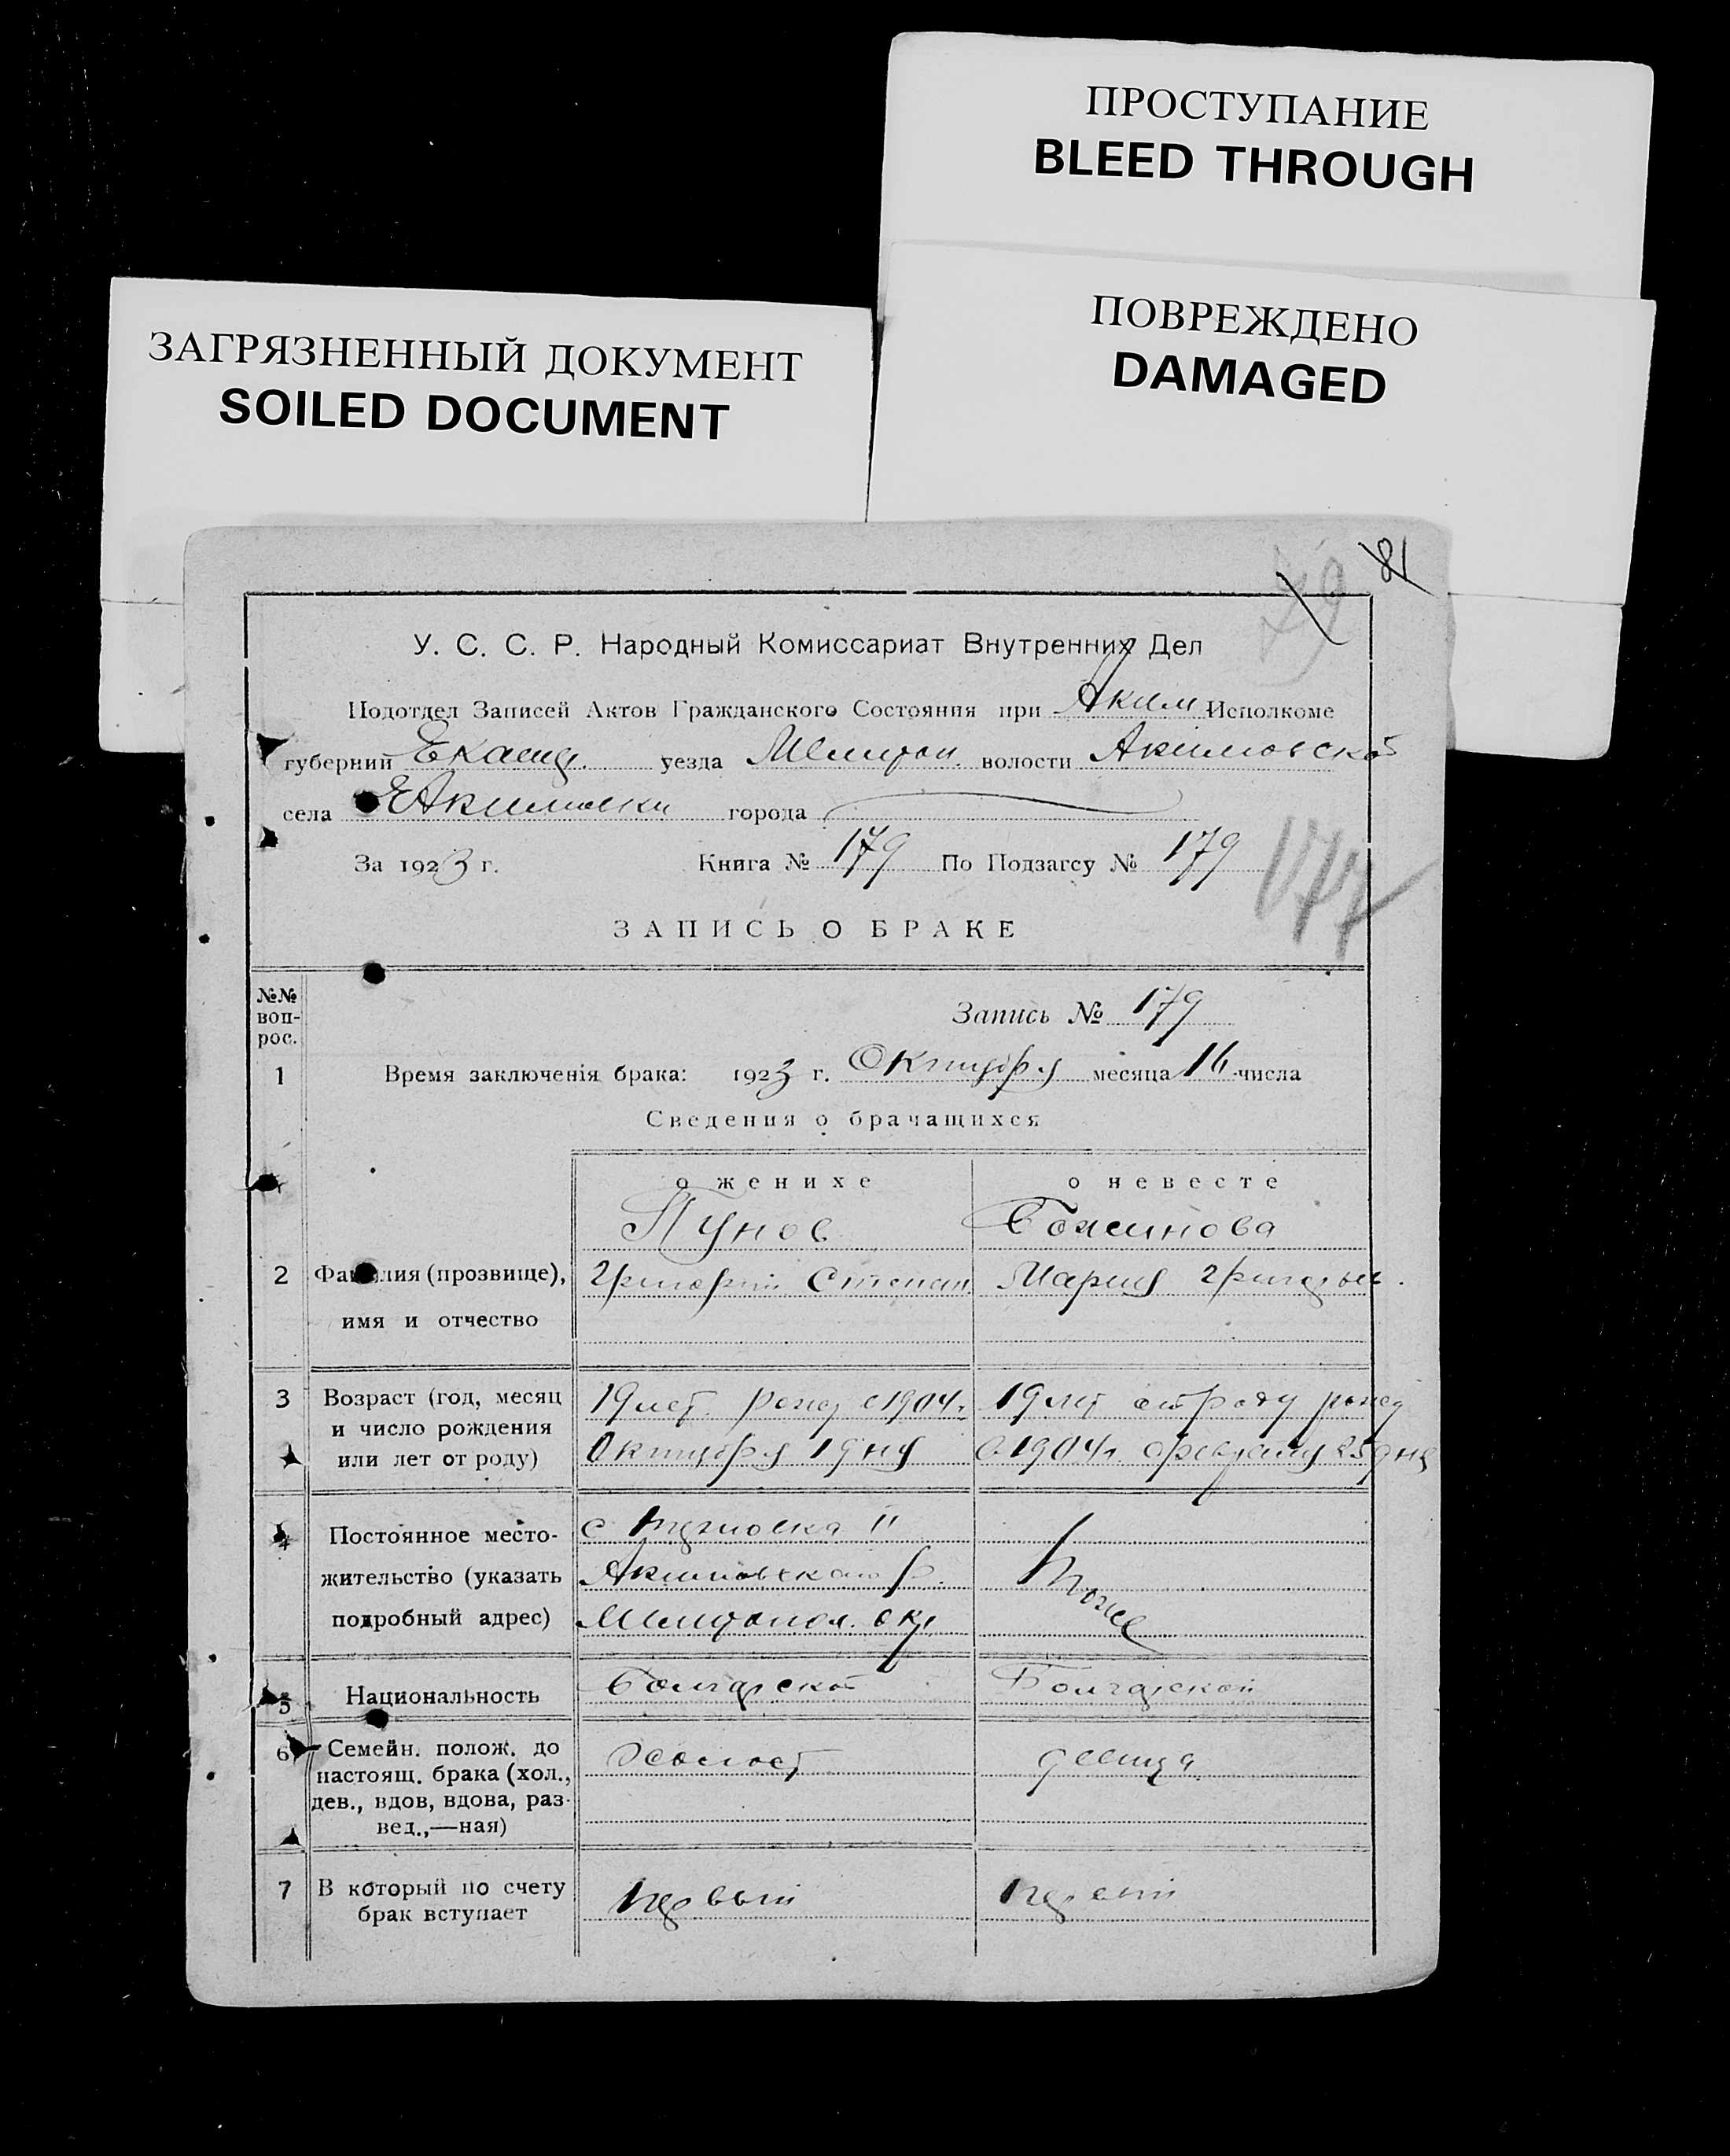 ПРОСТУПАНИЕ
BLEED THROUGH
ПОВРЕЖДЕНО
DAMAGED
ЗАГРЯЗНЕННЫЙ ДОКУМЕНТ
SOILED DOCUMENT
79 81
У. С. С. Р. Народный Комиссариат Внутренних Дел
Подотдел Записей Актов Гражданского Состояния при Аким Исполкоме
губерний Екатер. уезда Мелитоп. волости Акимовской
села Акимовки города
За 1923 г. Книга № 179 По Подзагсу № 179
177
ЗАПИСЬ О БРАКЕ
№№ воп-рос.
Запись № 179
1 Время заключенія брака: 1923 г. Октября месяца 16 числа
Сведения о брачащихся
о женихе о невесте
Пунов Божинова
2 Фамилия (прозвище), Григорий Степан. Мария Григорьев.
имя и отчество
3 Возраст (год, месяц 19 лет рожд с 1904. 19 лет от роду рожд
и число рождения
или лет от роду) Октября 19 ня в 1904 г. февраля 25 дня
4 Постоянное место- с II
жительство (указать Акимовского р. тоже
подробный адрес) Мелитопол. окр
5 Национальность Болгарской Болгарской
6 Семейн. полож. до Холост девица
настоящ. брака (хол.,
дев., вдов, вдова, раз-
вед.,—ная)
7 В который по счету первый первый
брак вступает